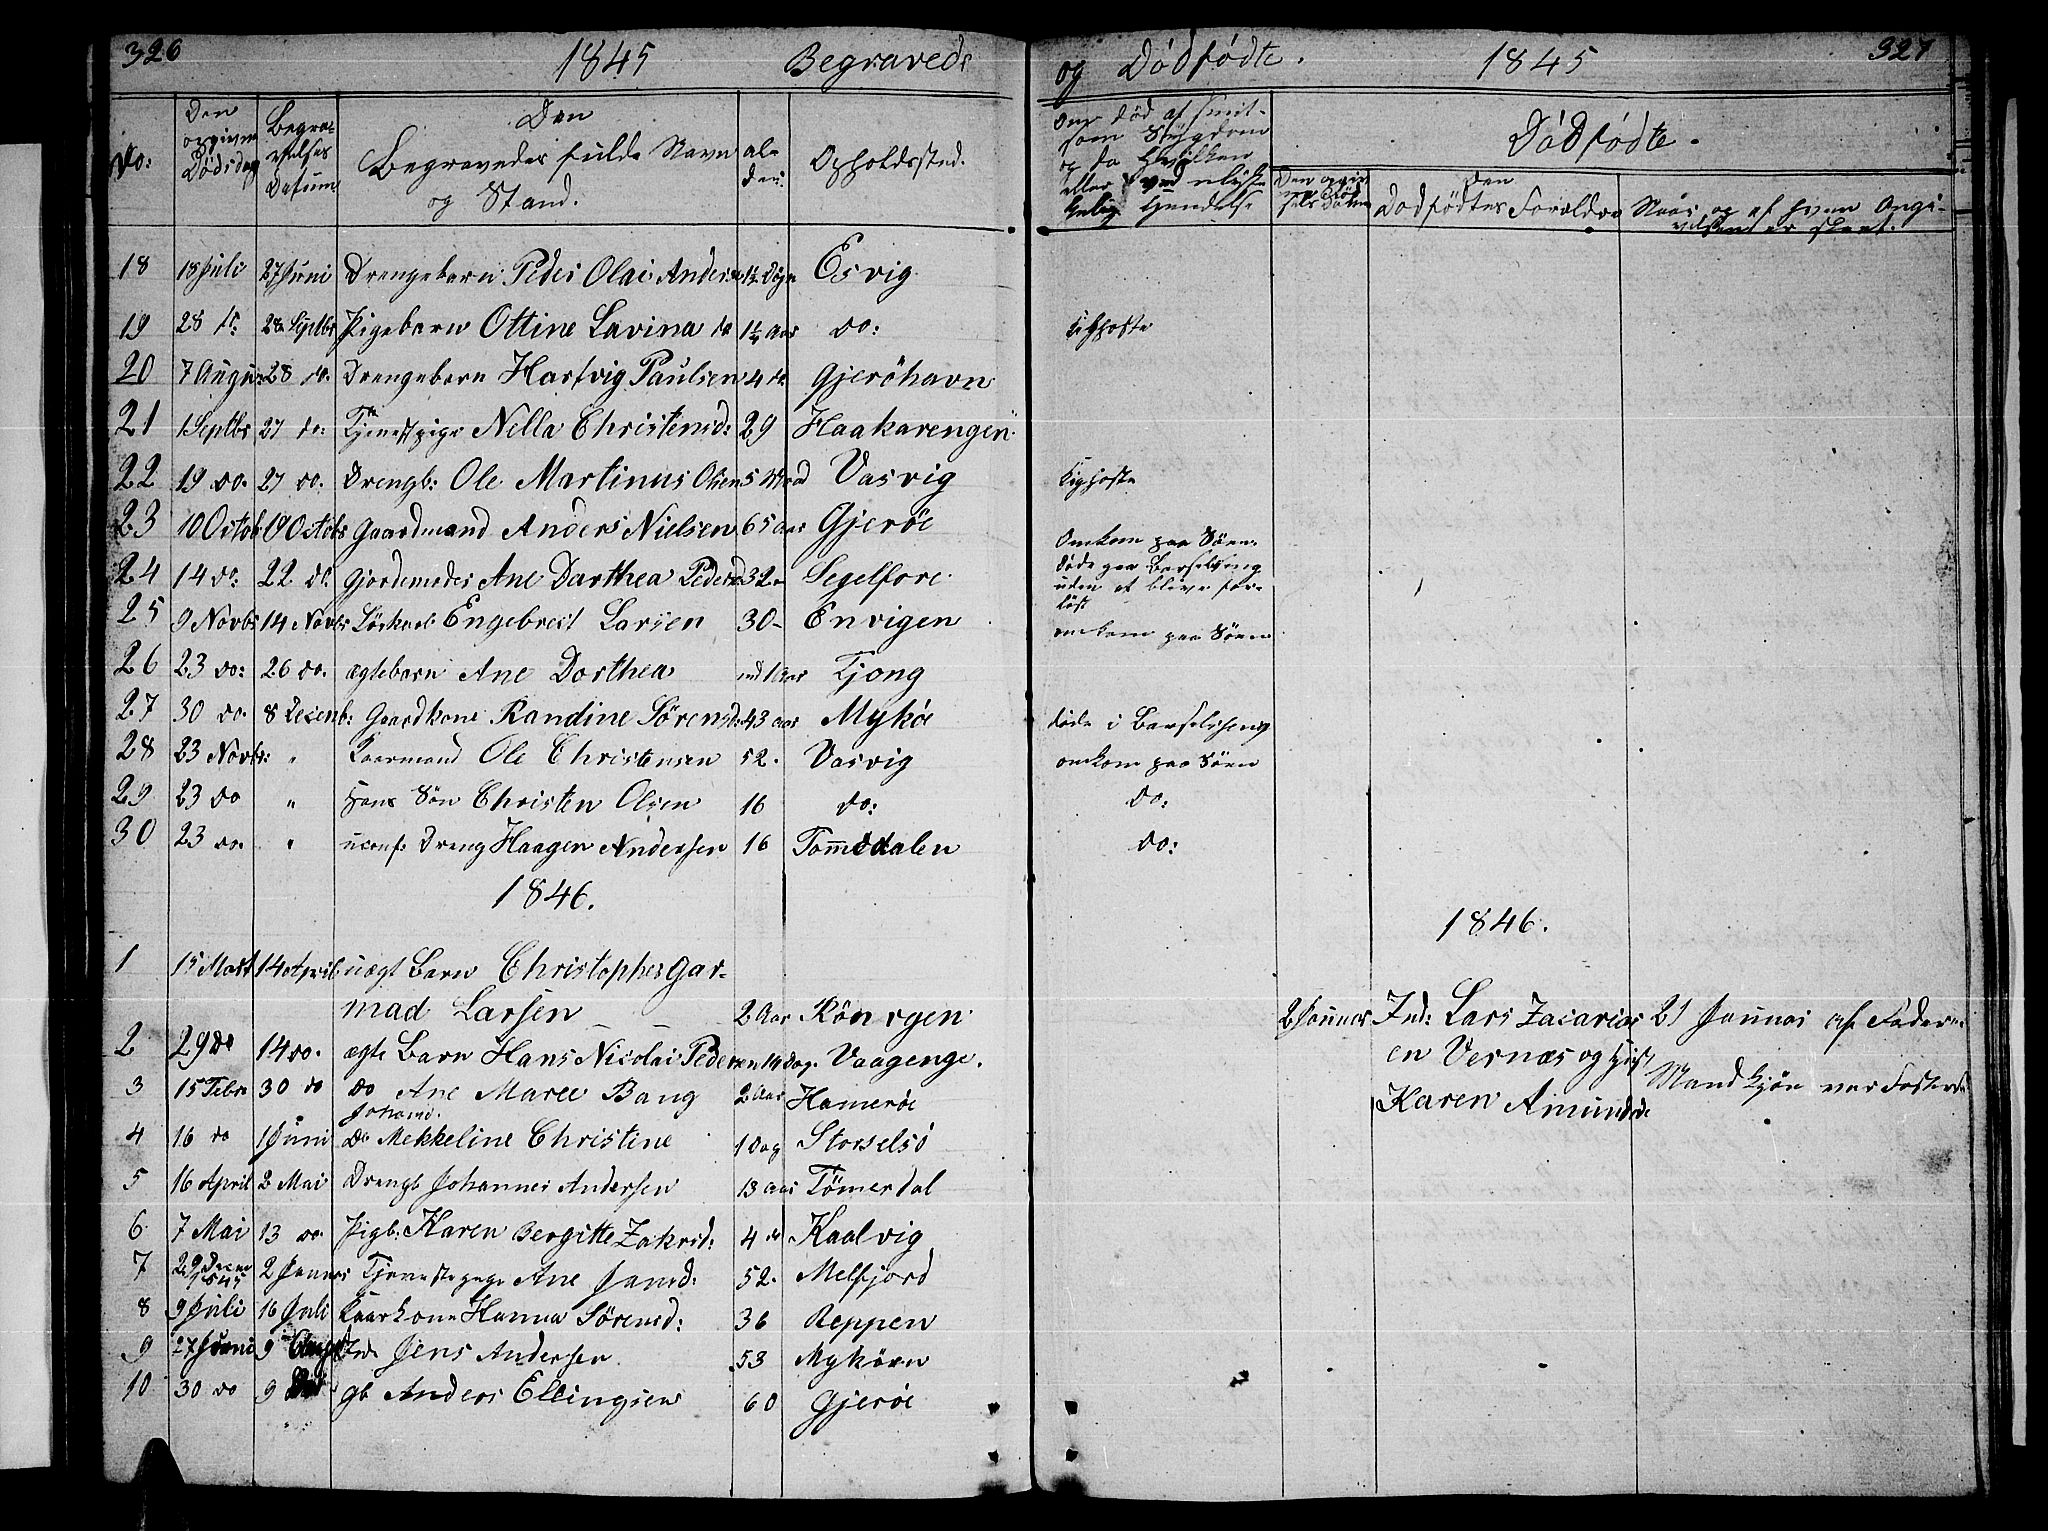 326 1845 Begravede
No: Den opgivne Dødsdag Begravelses Datum Den Begravedes fulde Navn og Stand. Alder. Opholdssted.
18 18 Juli 27 Juni Drengebarn Peder Olai Anders 1½ Døgn Esvig
19 28 do 28 Septbr Pigebarn Ottine Lavina do 1¼ Aar do:
20 7 August 28 do. Drengebarn Hartvig Paulsen 4 do Gjeröhavn
21 1 Septbr 27 do: Tjenestpige Nella Christensd: 29 Haakarengen
22 19 do. 27 do. Drengb: Ole Martinus Olsen 5 Maaned Vasvig
23 10 Octob 19 Octobr Gaardmand Anders Nielsen 65 aar Gjeröe
24 14 do: 22 do. Gjordemoder Ane Dorthea Pedersd 32 - Selfore
25 9 Novbr 14 Novbr Löskarl Engebregt Larsen 30 - Envigen
26 23 do: 26 do. ægtebarn Ane Dorthea ind 1 Aar Tjong
27 30 do. 8 Decemb: Gaardkone Randine Sörensd: 43 aar Myköe
28 23 Novbr: " Kaarmand Ole Christensen 52. Vasvig
29 23 do " Hans Sön Christen Olsen 16 do:
30 23 do. " uconf: Dreng Haagen Andersen 16 Tommerdalen
1846.
1 15 Mart 14 April uægt Barn Christopher Gar-
mad Larsen 2 Aar Rönvgen
2 29 Do 14 do. ægte Barn Hans Nicolai Pedersen 14 Dag. Vaagenge.
3 15 Febr 30 do do Ane Maree Bang 2 Aar Hameröe
Johansd.
4 16 do 1 Juni Do Mekkeline Christine 1 Dag Storselsö
5 16 April 2 Mai Drengb Johannes Andersen 13 aar Tömerdal
6 7 Mai 13 do. Pigb: Karen Bergitte Zakrisd: 4 do Kaalvig
7 29 Decem 1845 2 Januar Tjenestepige Ane Jansd: 52. Melfjord
8 9 Juli 16 Juli Kaarkone Hanna Sörensd: 36 Reppen
9 27 Juni 9 Aug Ind. Jens Andersen 53 Myköen
10 30 do 9 Do gb Anders Ellingsen 60 Gjeröe
og Dødfødte. 1845 327
Om død af smitsom Sygdom og da hvilken eller ved ulykkelig Hendelse
Dødfødte.
Den Dødfødtes Forældre
Naar og af hvem Angivelsen er skeet.
Kighoste
Kighoste
Omkom paa Söen.
döde paa Barselseng
uden at blive for-
löst
omkom paa Söen
döde i Barselseng
omkom paa Söen
do:
do:
1846.
2 Januar Ind: Lars Zacarias 21 Januar af Faderen
en Vernæs og Hust
Karen Amundsd Mandkjön var Fosteret